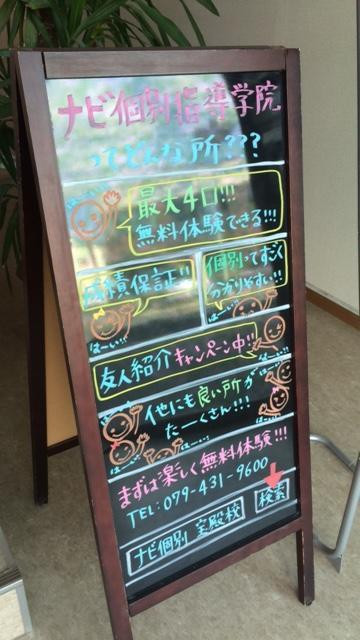 ナビ個別指導学院
ってどんな所???
はーい!!
最大4回!!!
無料体験できる!!!
成績保証!!
はーい!!
個別ってすごく
分かりやすい!!
はーい!!
友人紹介キャンペーン中!!
はーい!!
他にも良い所が
たーくさん!!!
はーい!!
まずは楽しく無料体験!!!
TEL: 079-431-9600
ナビ個別 宝殿校 検索